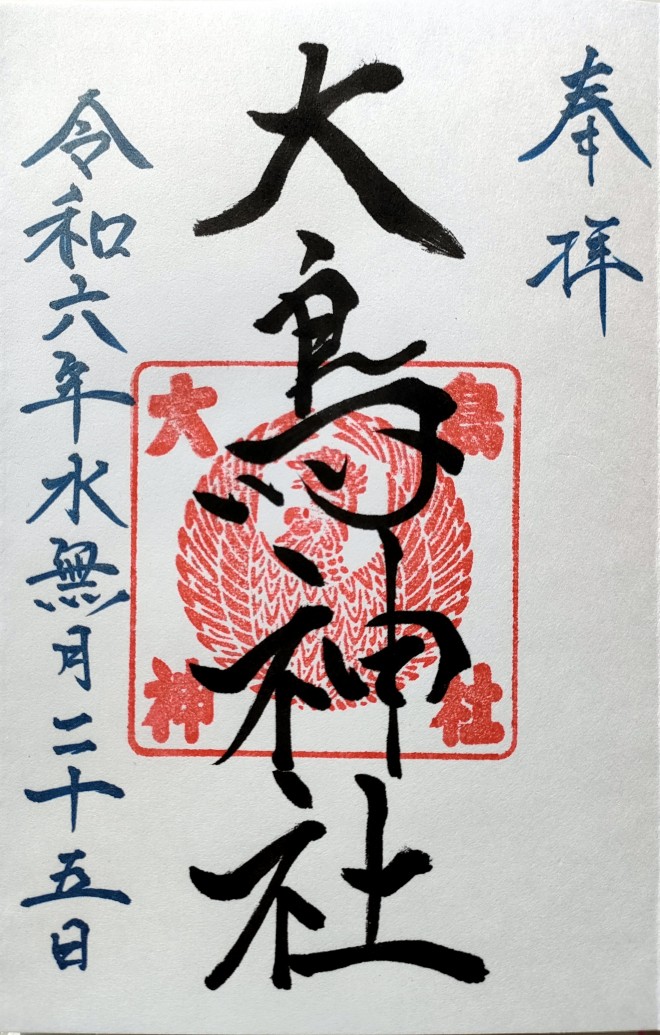 奉拝
大鳥神社
大鳥
神社
令和六年水無月二十五日